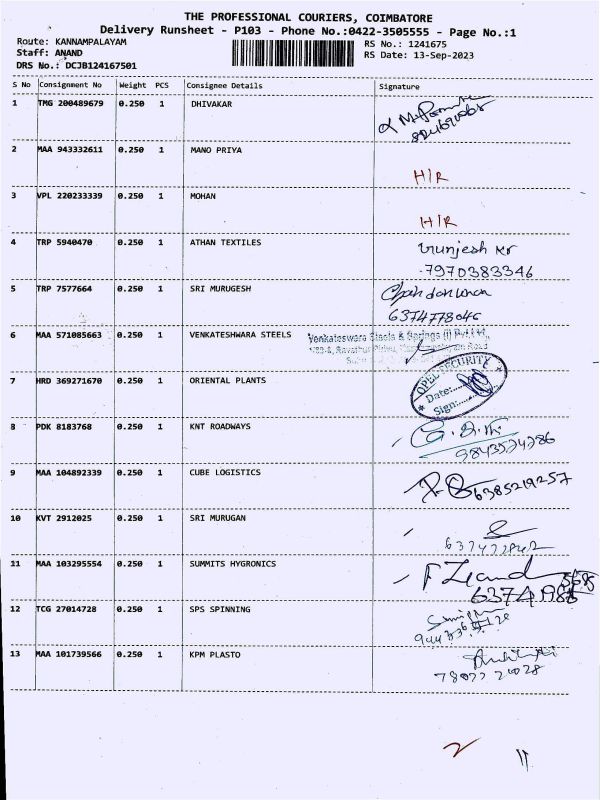 THE PROFESSIONAL COURIERS, COIMBATORE
Delivery Runsheet - P103 - Phone No.:0422-3505555 - Page No.:1
Route: KANNAMPALAYAM
RS No.: 1241675
Staff: ANAND
RS Date: 13-Sep-2023
DRS No.: DCJB124167501
S No Consignment No Weight PCS Consignee Details Signature
1 TMG 200489679 0.250 1 DHIVAKAR
2 MAA 943332611 0.250 1 MANO PRIYA
H/R
3 VPL 220233339 0.250 1 MOHAN
H/R
4 TRP 5940470 0.250 1 ATHAN TEXTILES
7970383346
5 TRP 7577664 0.250 1 SRI MURUGESH
6374778046
6 MAA 571085663 0.250 1 VENKATESHWARA STEELS Venkateswara Steels & Springs (I) Pvt Ltd
7 HRD 369271670 0.250 1 ORIENTAL PLANTS
OPEL SECURITY
Date:
Sign:
8 PDK 8183768 0.250 1 KNT ROADWAYS
9843574786
9 MAA 104892339 0.250 1 CUBE LOGISTICS
6385219257
10 KVT 2912025 0.250 1 SRI MURUGAN
11 MAA 103295554 0.250 1 SUMMITS HYGRONICS
12 TCG 27014728 0.250 1 SPS SPINNING
13 MAA 101739566 0.250 1 KPM PLASTO
2 11